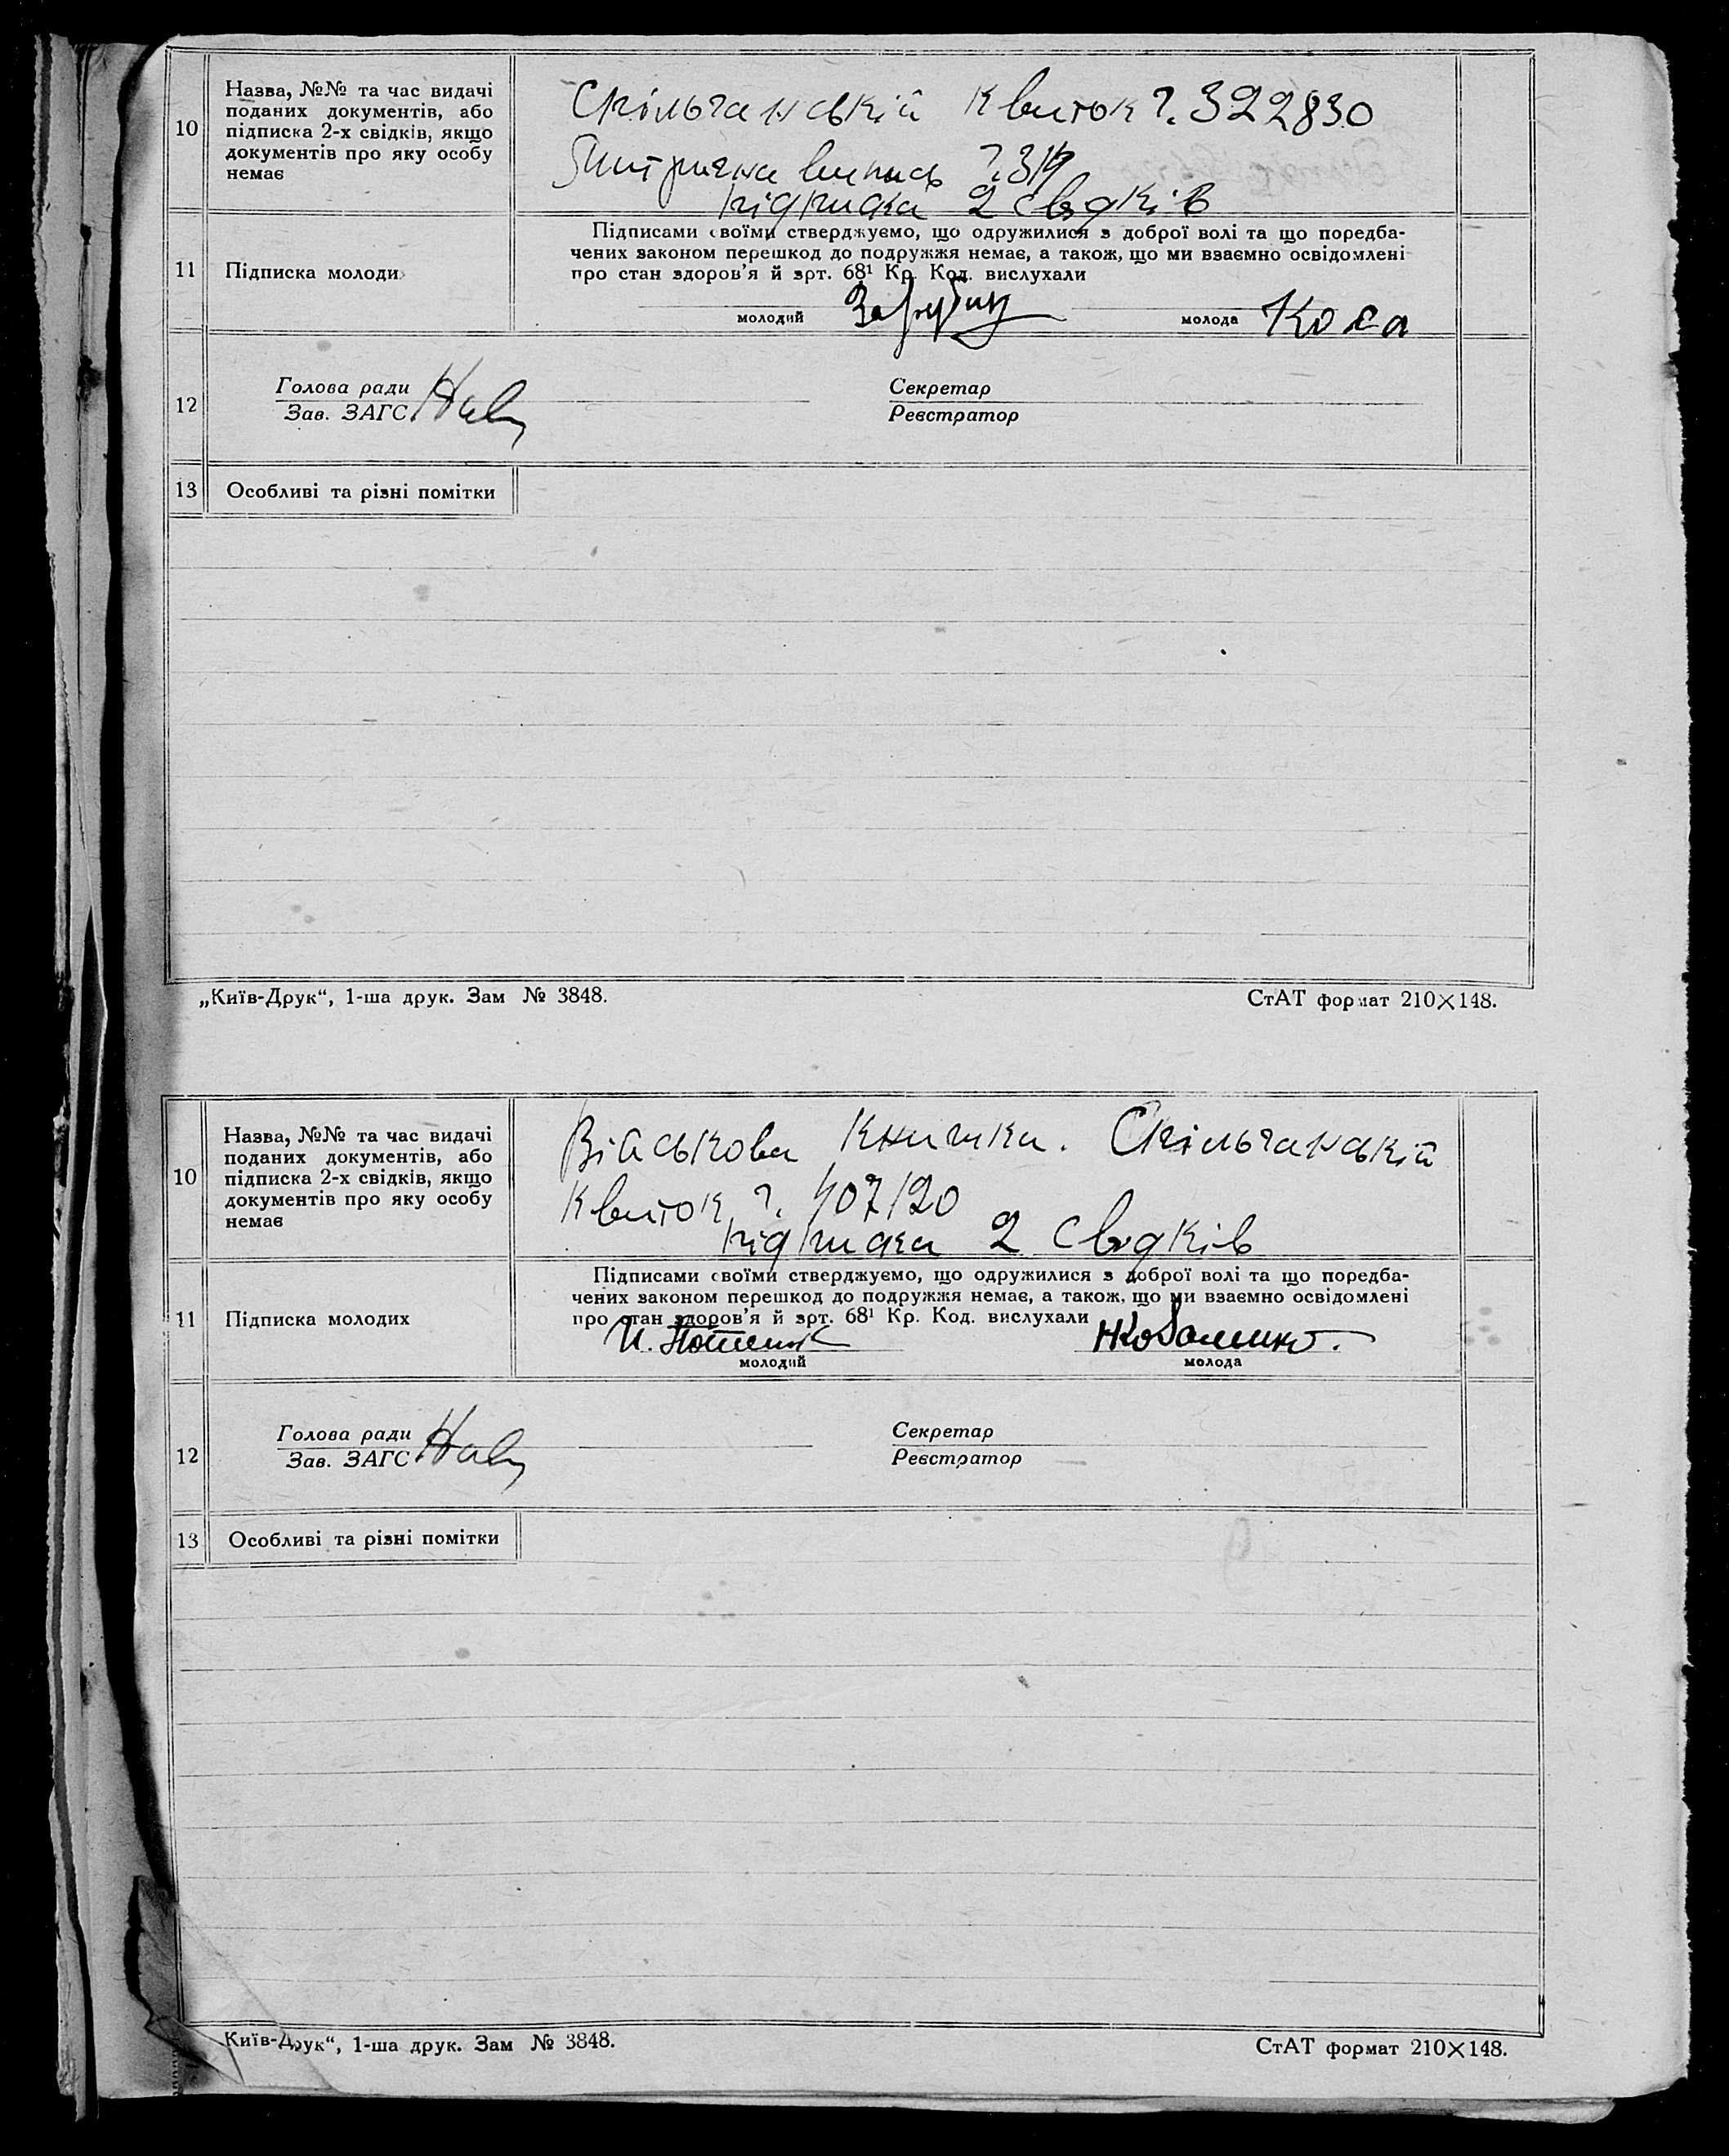 10
Назва, №№ та час видачі
поданих документів, або
підписка 2-х свідків, якщо
документів про яку особу
немає
Спільчанській квиток ч. 322830
Метрична випись ч. 314
підписка 2 свідків
11
Підписка молоди
Підписами своїми стверджуємо, що одружилися з доброї волі та що поредба-
чених законом перешкод до подружжя немає, а також, що ми взаємно освідомлені
про стан здоров'я й зрт. 68¹ Кр. Код. вислухали
молодий
молода Коса
12
Голова ради
Зав. ЗАГС
Секретар
Реєстратор
13 Особливі та різні помітки
„Київ-Друк“, 1-ша друк. Зам № 3848.
СтАТ формат 210×148.
10
Назва, №№ та час видачі
поданих документів, або
підписка 2-х свідків, якщо
документів про яку особу
немає
Військова книжка. Спільчанській
квиток ч. 407120
підписка 2 свідків
11
Підписка молодих
Підписами своїми стверджуємо, що одружилися з доброї волі та що поредба-
чених законом перешкод до подружжя немає, а також, що ми взаємно освідомлені
про стан здоров'я й зрт. 68¹ Кр. Код. вислухали
молодий
молода
12
Голова ради
Зав. ЗАГС
Секретар
Реєстратор
13 Особливі та різні помітки
Київ-Друк“, 1-ша друк. Зам № 3848.
СтАТ формат 210×148.